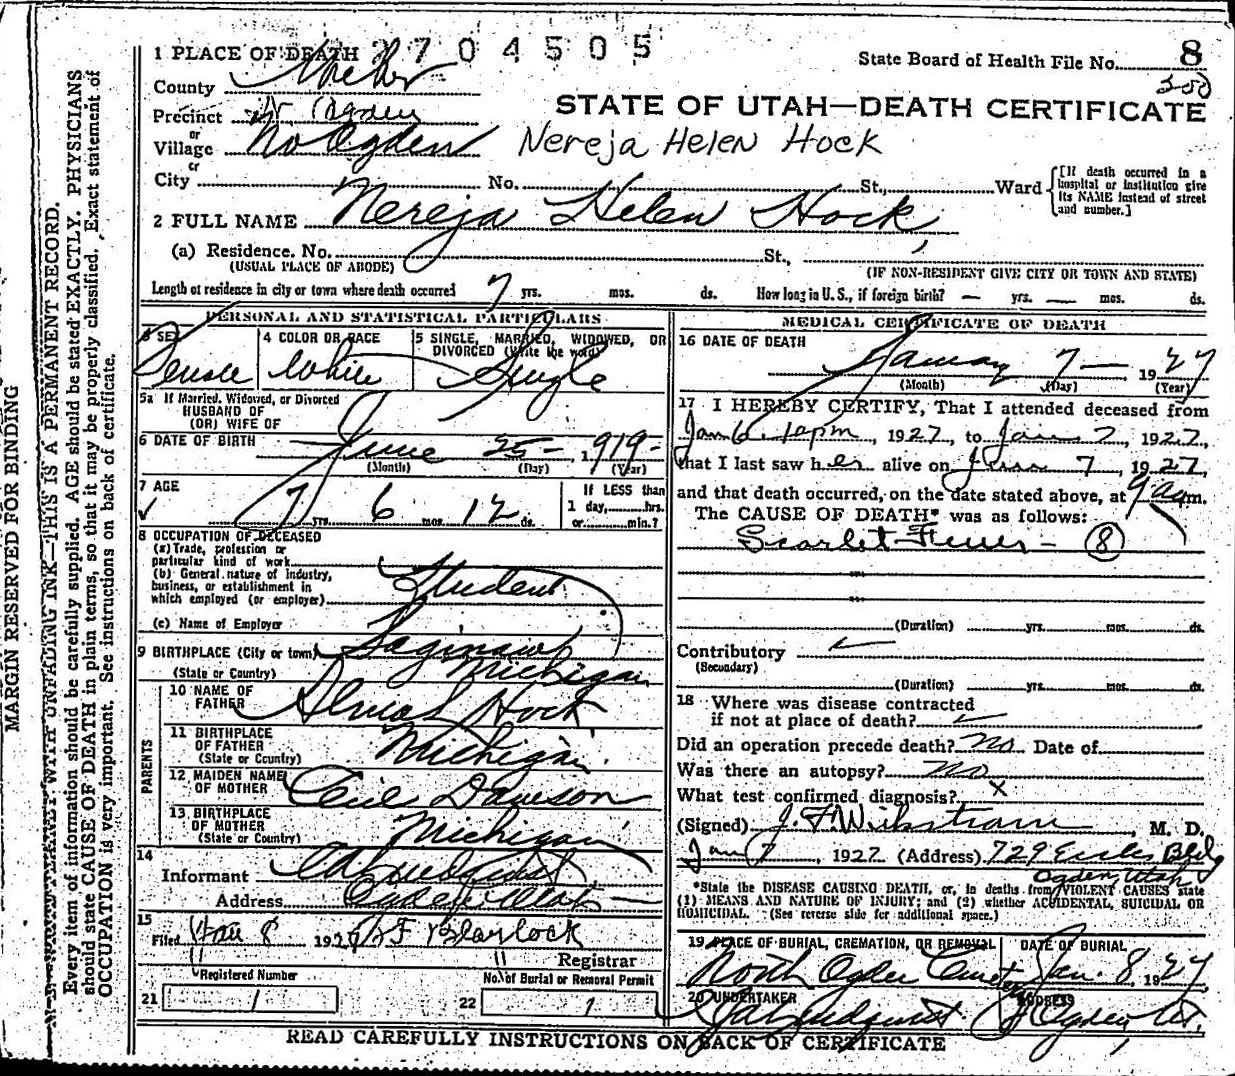 MARGIN RESERVED FOR BINDING
N. B.—WRITE PLAINLY WITH UNFADING INK—THIS IS A PERMANENT RECORD.
Every item of information should be carefully supplied. AGE should be stated EXACTLY. PHYSICIANS
should state CAUSE OF DEATH in plain terms, so that it may be properly classified. Exact statement of
OCCUPATION is very important. See instructions on back of certificate.
2704505
1 PLACE OF DEATH
State Board of Health File No. 8
300
County Weber
STATE OF UTAH—DEATH CERTIFICATE
Precinct N. Ogden
or
Village No Ogden
Nereja Helen Hock
or
City No. St., Ward
[If death occurred in a
hospital or institution give
its NAME instead of street
and number.]
2 FULL NAME Nereja Helen Hock,
(a) Residence. No. St.,
(USUAL PLACE OF ABODE) (IF NON-RESIDENT GIVE CITY OR TOWN AND STATE)
Length of residence in city or town where death occurred 7 yrs. mos. ds. How long in U. S., if foreign birth? — yrs. — mos. ds.
PERSONAL AND STATISTICAL PARTICULARS
3 SEX Female
4 COLOR OR RACE White
5 SINGLE, MARRIED, WIDOWED, OR
DIVORCED (Write the word) Single
5a If Married, Widowed, or Divorced
HUSBAND OF
(OR) WIFE OF
6 DATE OF BIRTH June 25— 1919—
(Month) (Day) (Year)
7 AGE
7 yrs. 6 mos. 12 ds.
If LESS than
1 day, hrs.
or min.?
8 OCCUPATION OF DECEASED
(a) Trade, profession or
particular kind of work
(b) General nature of industry,
business, or establishment in
which employed (or employer)
Student
(c) Name of Employer
9 BIRTHPLACE (City or town) Saginaw
(State or Country) Michigan
PARENTS
10 NAME OF
FATHER Hock
11 BIRTHPLACE
OF FATHER
(State or Country) Michigan.
12 MAIDEN NAME
OF MOTHER Dawson
13 BIRTHPLACE
OF MOTHER
(State or Country) Michigan
14
Informant
Address Ogden Utah
15
Filed Jan 8 192 Blaylock
Registrar
Registered Number
21 1
No. of Burial or Removal Permit
22 1
MEDICAL CERTIFICATE OF DEATH
16 DATE OF DEATH
January 7— 1927
(Month) (Day) (Year)
17 I HEREBY CERTIFY, That I attended deceased from
Jan 6. 10pm, 1927, to Jan 7, 1927,
that I last saw her alive on Jan 7, 1927,
and that death occurred, on the date stated above, at 9 am.
The CAUSE OF DEATH* was as follows:
Scarlet Fever — 8
(Duration) yrs. mos. ds.
Contributory
(Secondary)
(Duration) yrs. mos. ds.
18 Where was disease contracted
if not at place of death?
Did an operation precede death? No Date of
Was there an autopsy? No
What test confirmed diagnosis? x
(Signed) J. F. Wikstrom, M. D.
Jan 7, 1927 (Address) 729 Eccles Bldg
Ogden, Utah
*State the DISEASE CAUSING DEATH, or, in deaths from VIOLENT CAUSES state
(1) MEANS AND NATURE OF INJURY; and (2) whether ACCIDENTAL, SUICIDAL OR
HOMICIDAL. (See reverse side for additional space.)
19 PLACE OF BURIAL, CREMATION, OR REMOVAL
North Ogden Cemetery
DATE OF BURIAL
Jan. 8, 1927
20 UNDERTAKER
Lindquist
ADDRESS
Ogden, Ut.
READ CAREFULLY INSTRUCTIONS ON BACK OF CERTIFICATE